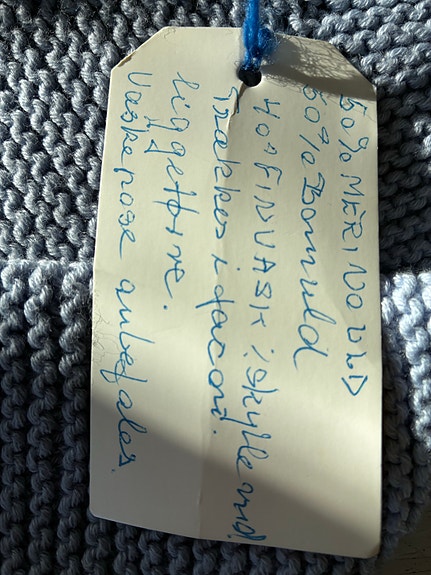 50% MERINOULD
50% Bomuld
40° FINVASK i skyllevand.
Trækkes i facon.
liggetørre.
Vaskepose anbefales.